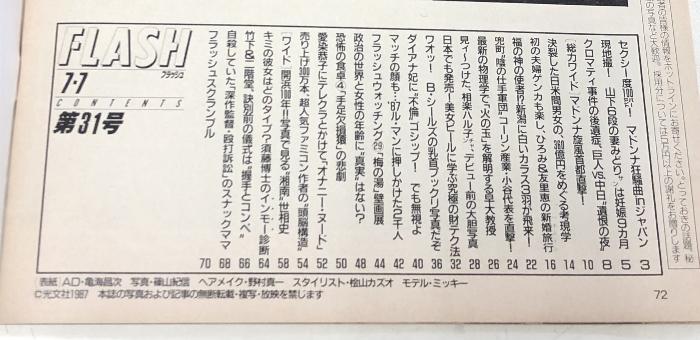 FLASH
フラッシュ
7・7
CONTENTS
第31号
セクシー度100㌫! マドンナ狂騒曲inジャパン 3
現地撮! 山下8段の妻みどり。は妊娠9カ月 5
クロマティ事件の後遺症、巨人VS.中日“遺恨の夜” 8
〔総力ワイド〕マドンナ旋風首都直撃! 10
決裂した日米間男女の、360億円をめぐる考現学 14
初の夫婦ゲンカも楽し、ひろみ&友里恵の新婚旅行 16
福の神の使者!?新潟に白いカラス3羽が飛来! 22
兜町“陰の仕手軍団”コーリン産業・小谷代表を直撃! 24
最新の物理学で、“火の玉”を解明する早大教授 26
見ィーつけた、相楽ハル子、デビュー前の大胆写真 28
日本でも発売!美女ビールに学ぶ究極の財テク法 32
ワオッ! B・シールズの乳首プックリ写真だぞ 36
ダイアナ妃に“不倫”ゴシップ! でも無視よ 40
マッチの顔も…'87ル・マンに押しかけた2千人 42
フラッシュウォッチング㉙「梅の湯」壁画展 44
政治の世界と女性の年齢に“真実”はない? 48
恐怖の食卓④「手足欠損猿」の悲劇 50
愛染恭子にテレクラとかけて「オナニー・ヌード」 52
売り上げ300万本、超人気ファミコン作者の“頭脳構造” 54
〔ワイド〕開浜100年!!写真で見る“湘南”世相史 58
キミの彼女はどのタイプ?須藤博士のインモー診断 64
竹下&二階堂、訣別の儀式は“握手とコンペ” 66
自殺していた「深作監督・殴打訴訟」のスナックママ 68
フラッシュスクランブル 70
〔表紙〕AD・亀海昌次 写真・篠山紀信 ヘアメイク・野村真一 スタイリスト・桧山カズオ モデル・ミッキー
©光文社1987 本誌の写真および記事の無断転載・複写・放映を禁じます
72